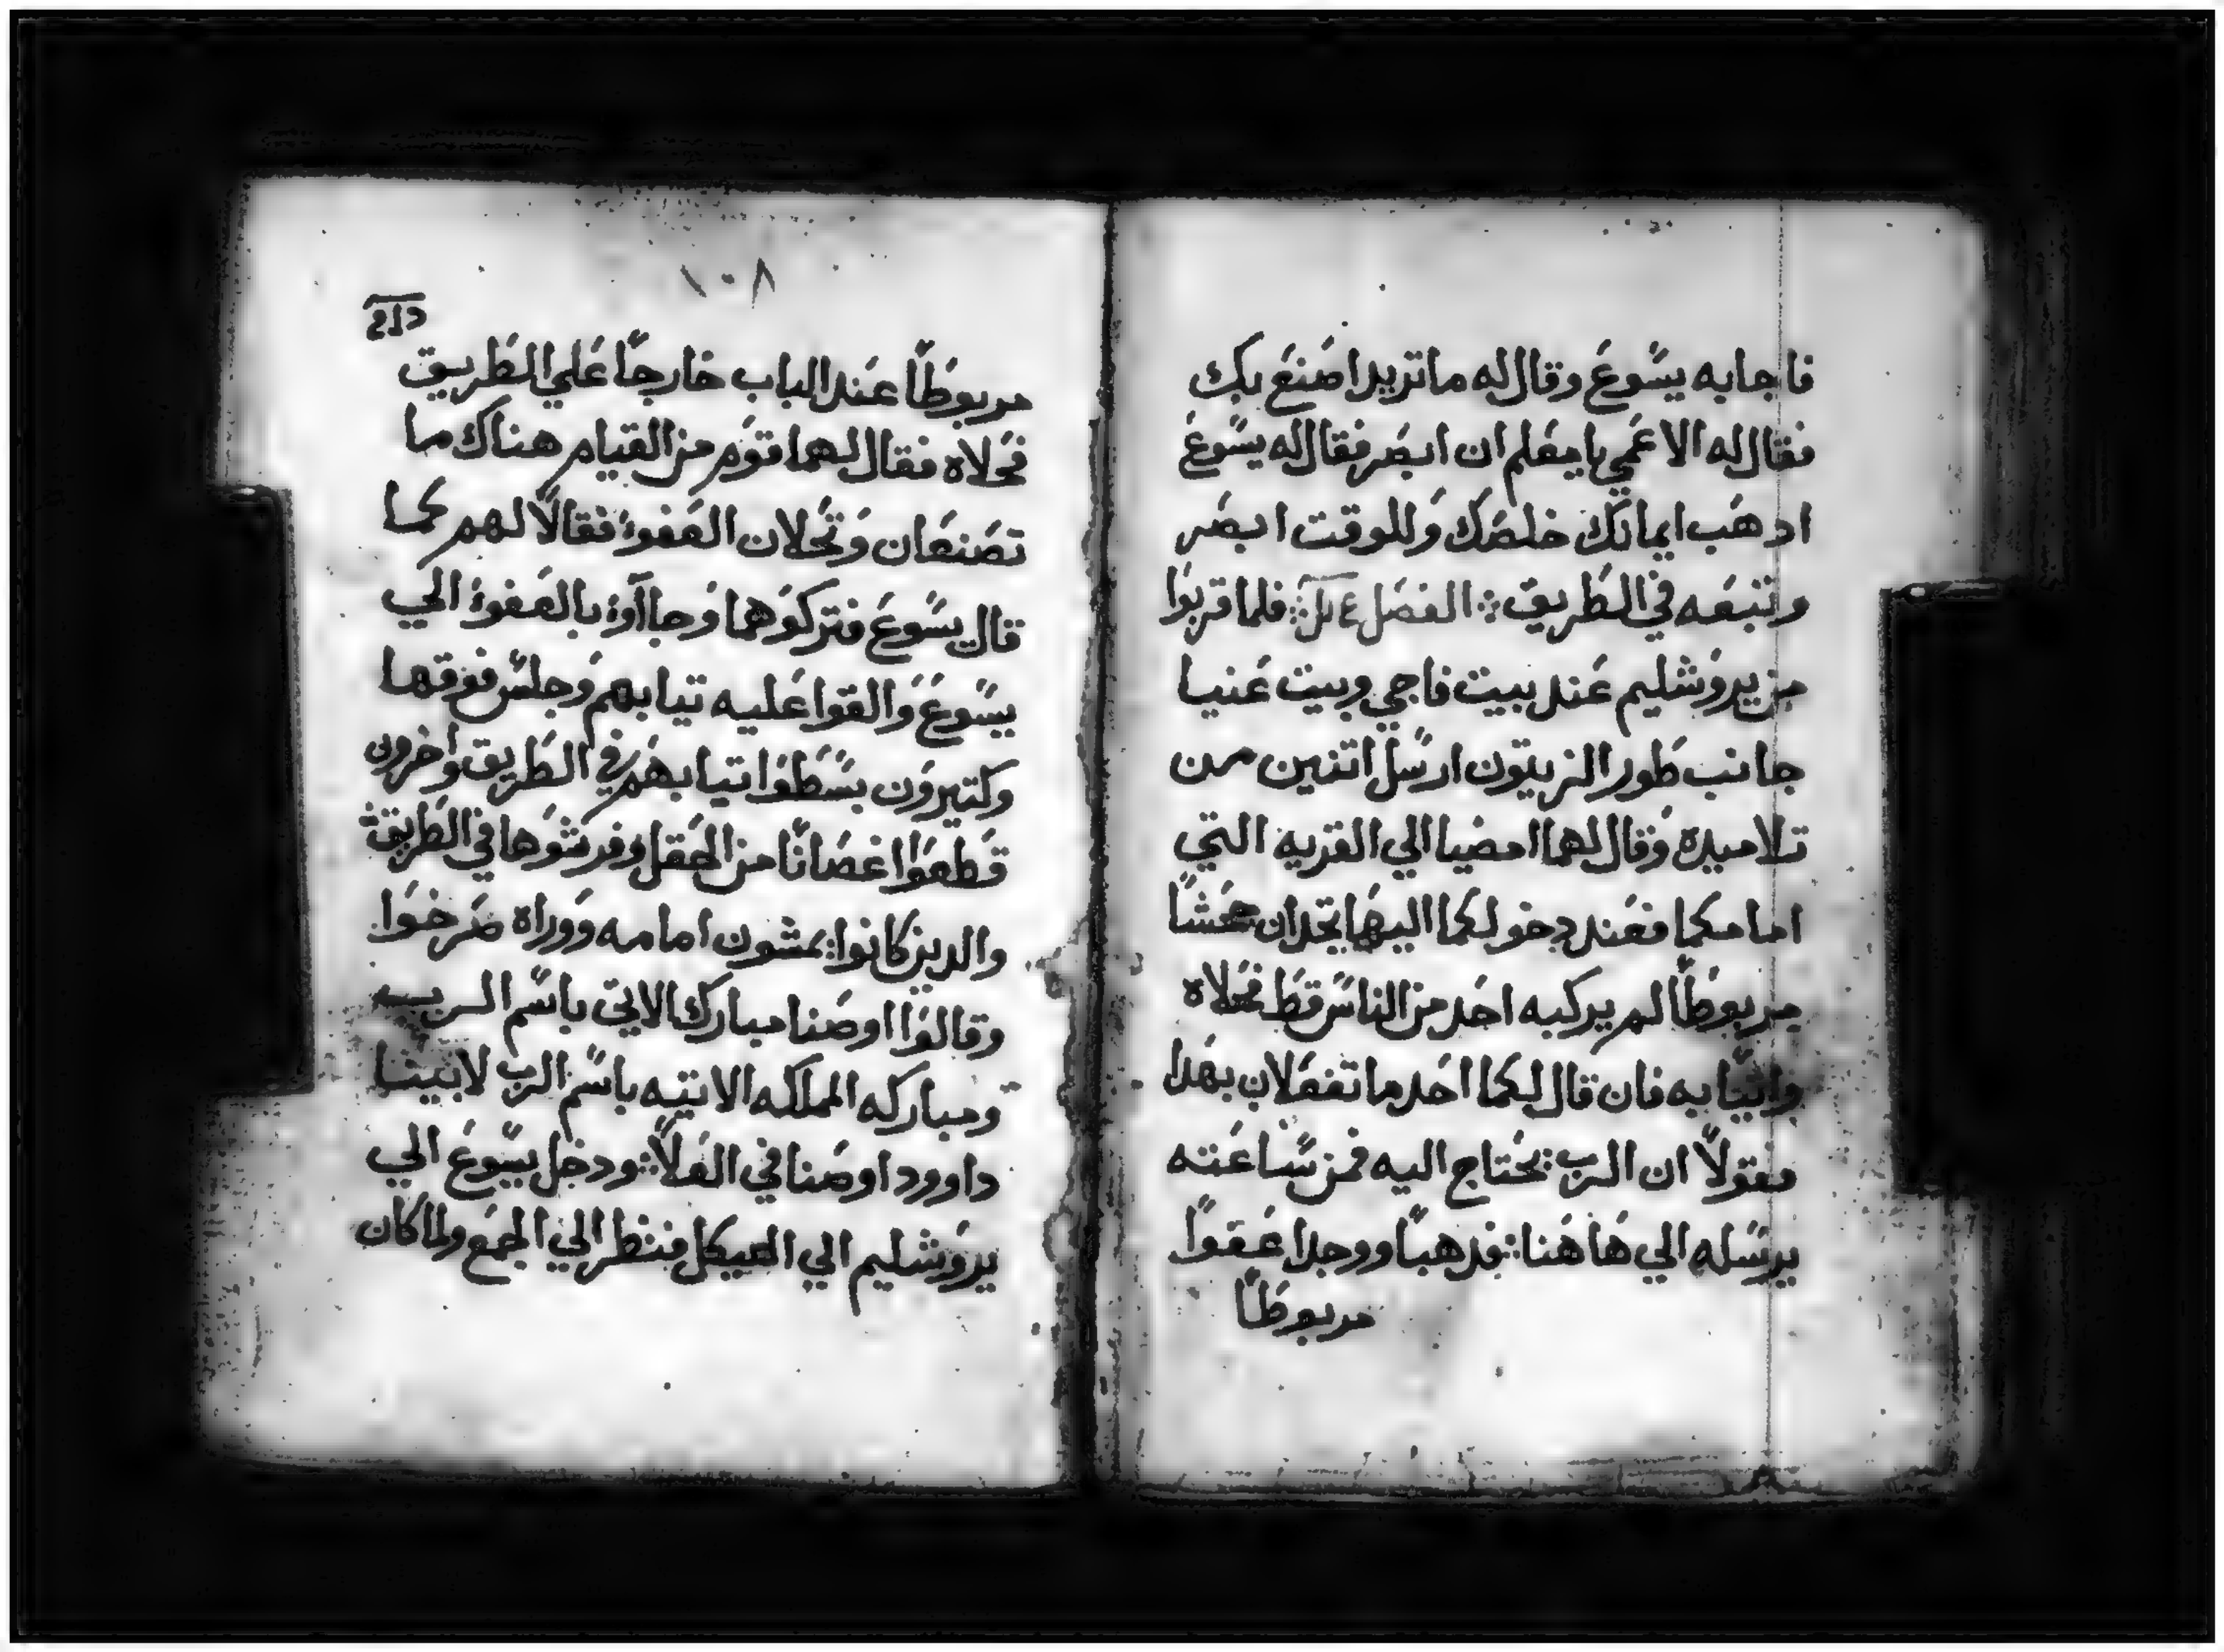 فاجابه يسوع وقال له ما تريد اصنع بك
فقال له الاعمي يا معلم ان ابصر فقال له يسوع
ادهب ايمانك خلصك وللوقت ابصر
وتبعه في الطريق ܀ الفصل ܀ فلما قربوا
من يروشليم عند بيت فاجي وبيت عنيا
جانب طور الزيتون ارسل اتنين من
تلاميده وقال لهما امضيا الي القريه التي
امامكما فعند دخولكما اليها تجدان جحشا
مربوطا لم يركبه احد من الناس قط فحلاه
واتيا به فان قال لكما احد ما تفعلان بهدا
فقولا ان الرب يحتاج اليه فمن ساعته
يرسله الي هاهنا ܀ فدهبا ووجدا عفوا
مربوطا
١٠٨
مربوطا عند الباب خارجا علي الطريق
فحلاه فقال لهما قوم من القيام هناك ما
تصنعان وتحلان العفو فقالا لهم كما
قال يسوع فتركوهما وجااوا بالعفو الي
يسوع والقوا عليه تيابهم وجلس فوقها
وكتيرون بسطوا تيابهم في الطريق واخرون
قطعوا اغصانا من الحقل وفرشوها في الطريق ܀
والدين كانوا يمشون امامه ووراه صرخوا
وقالوا اوصنا مبارك الاتي باسم الرب
ومباركه المملكه الاتيه باسم الرب لابينا
داوود اوصنا في العلا ܀ ودخل يسوع الي
يروشليم الي الهيكل فنظر الي الجمع ولما كان